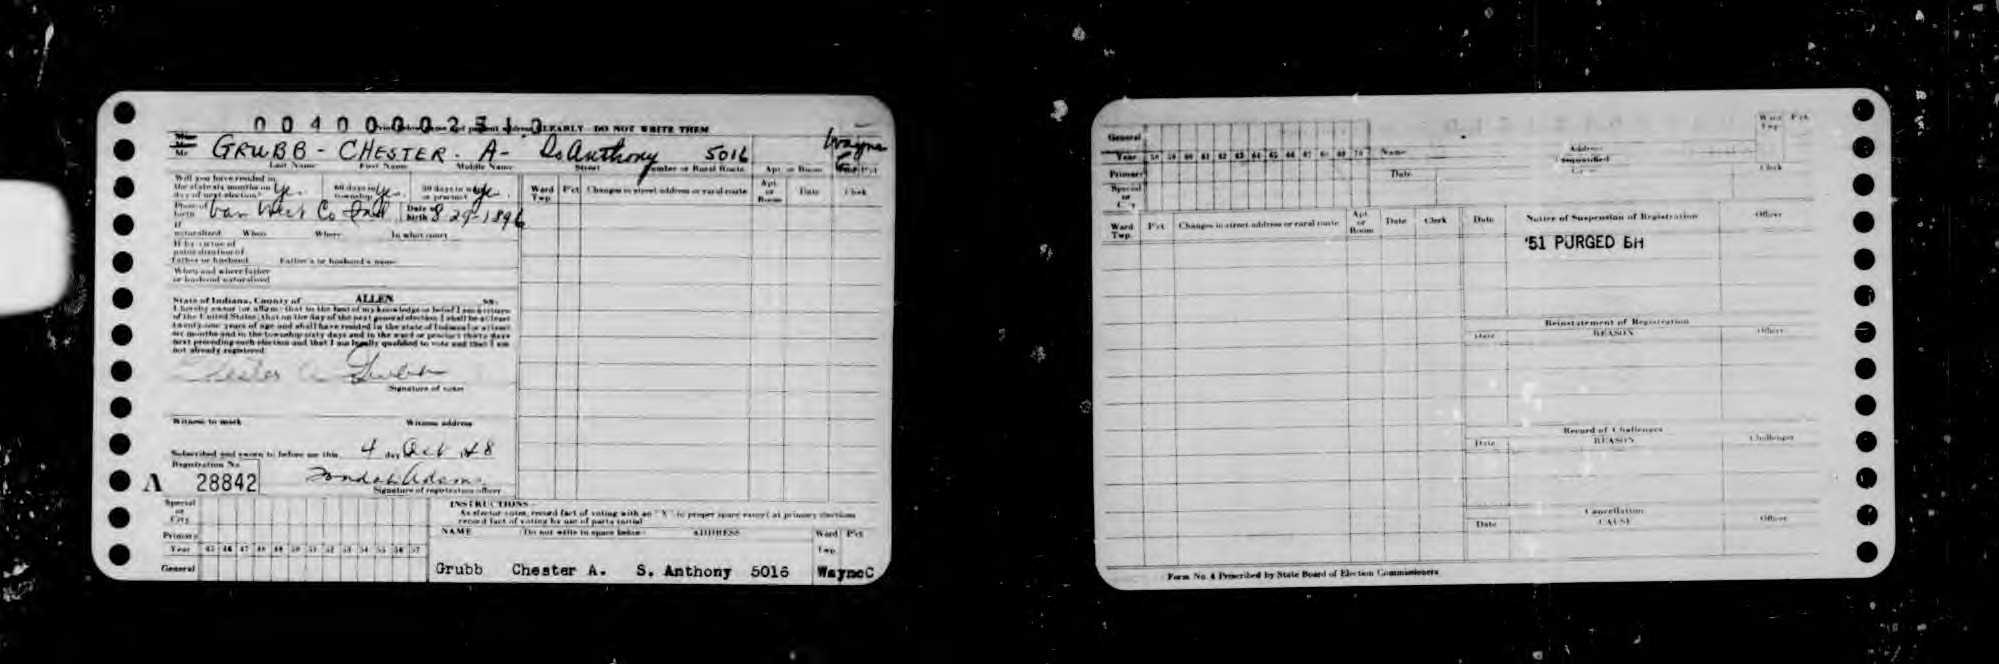 004000023 1 0
Print below name and present address CLEARLY - DO NOT WRITE THEM
Mr GRUBB - CHESTER - A - So Anthony 5016 Wayne C
Last Name First Name Middle Name Street Number or Rural Route Apt. or Room Pct
Will you have resided in
the state six months on day of next election? Ye. 60 days in township Ye. 30 days in ward or precinct Ye.
Place of birth Van Wert Co Date of birth 8-29-1896
If naturalized When Where In what court
If by virtue of naturalization of father or husband Father's or husband's name
When and where father or husband naturalized
Ward Twp. Pct Changes in street address or rural route Apt. or Room Date Clerk
State of Indiana, County of ALLEN ss.
I hereby swear (or affirm) that to the best of my knowledge or belief I am a citizen
of the United States; that on the day of the next general election I shall be at least
twenty-one years of age and shall have resided in the state of Indiana for at least
six months and in the township sixty days and in the ward or precinct thirty days
next preceding such election and that I am legally qualified to vote and that I am
not already registered.
Chester A. Grubb
Signature of voter
Witness to mark Witness address
Subscribed and sworn to before me this 4 day Oct 48
Registration No.
A 28842
Signature of registration officer
Special or City
Primary
Year 45 46 47 48 49 50 51 52 53 54 55 56 57
General
INSTRUCTIONS
As elector votes, record fact of voting with an "X" in proper space except at primary elections
record fact of voting by use of party initial
NAME (Do not write in space below) ADDRESS Ward Twp. Pct
Grubb Chester A. S. Anthony 5016 WayneC
General
Year 58 59 60 61 62 63 64 65 66 67 68 69 70 Name Address
Primary Date Clerk
Special or City
Ward Twp. Pct.
Ward Twp. Pct Changes in street address or rural route Apt. or Room Date Clerk
Date Notice of Suspension of Registration Officer
'51 PURGED BH
Reinstatement of Registration
Date REASON Officer
Record of Challenges
Date REASON Challenger
Cancellation
Date CAUSE Officer
Form No. 4 Prescribed by State Board of Election Commissioners